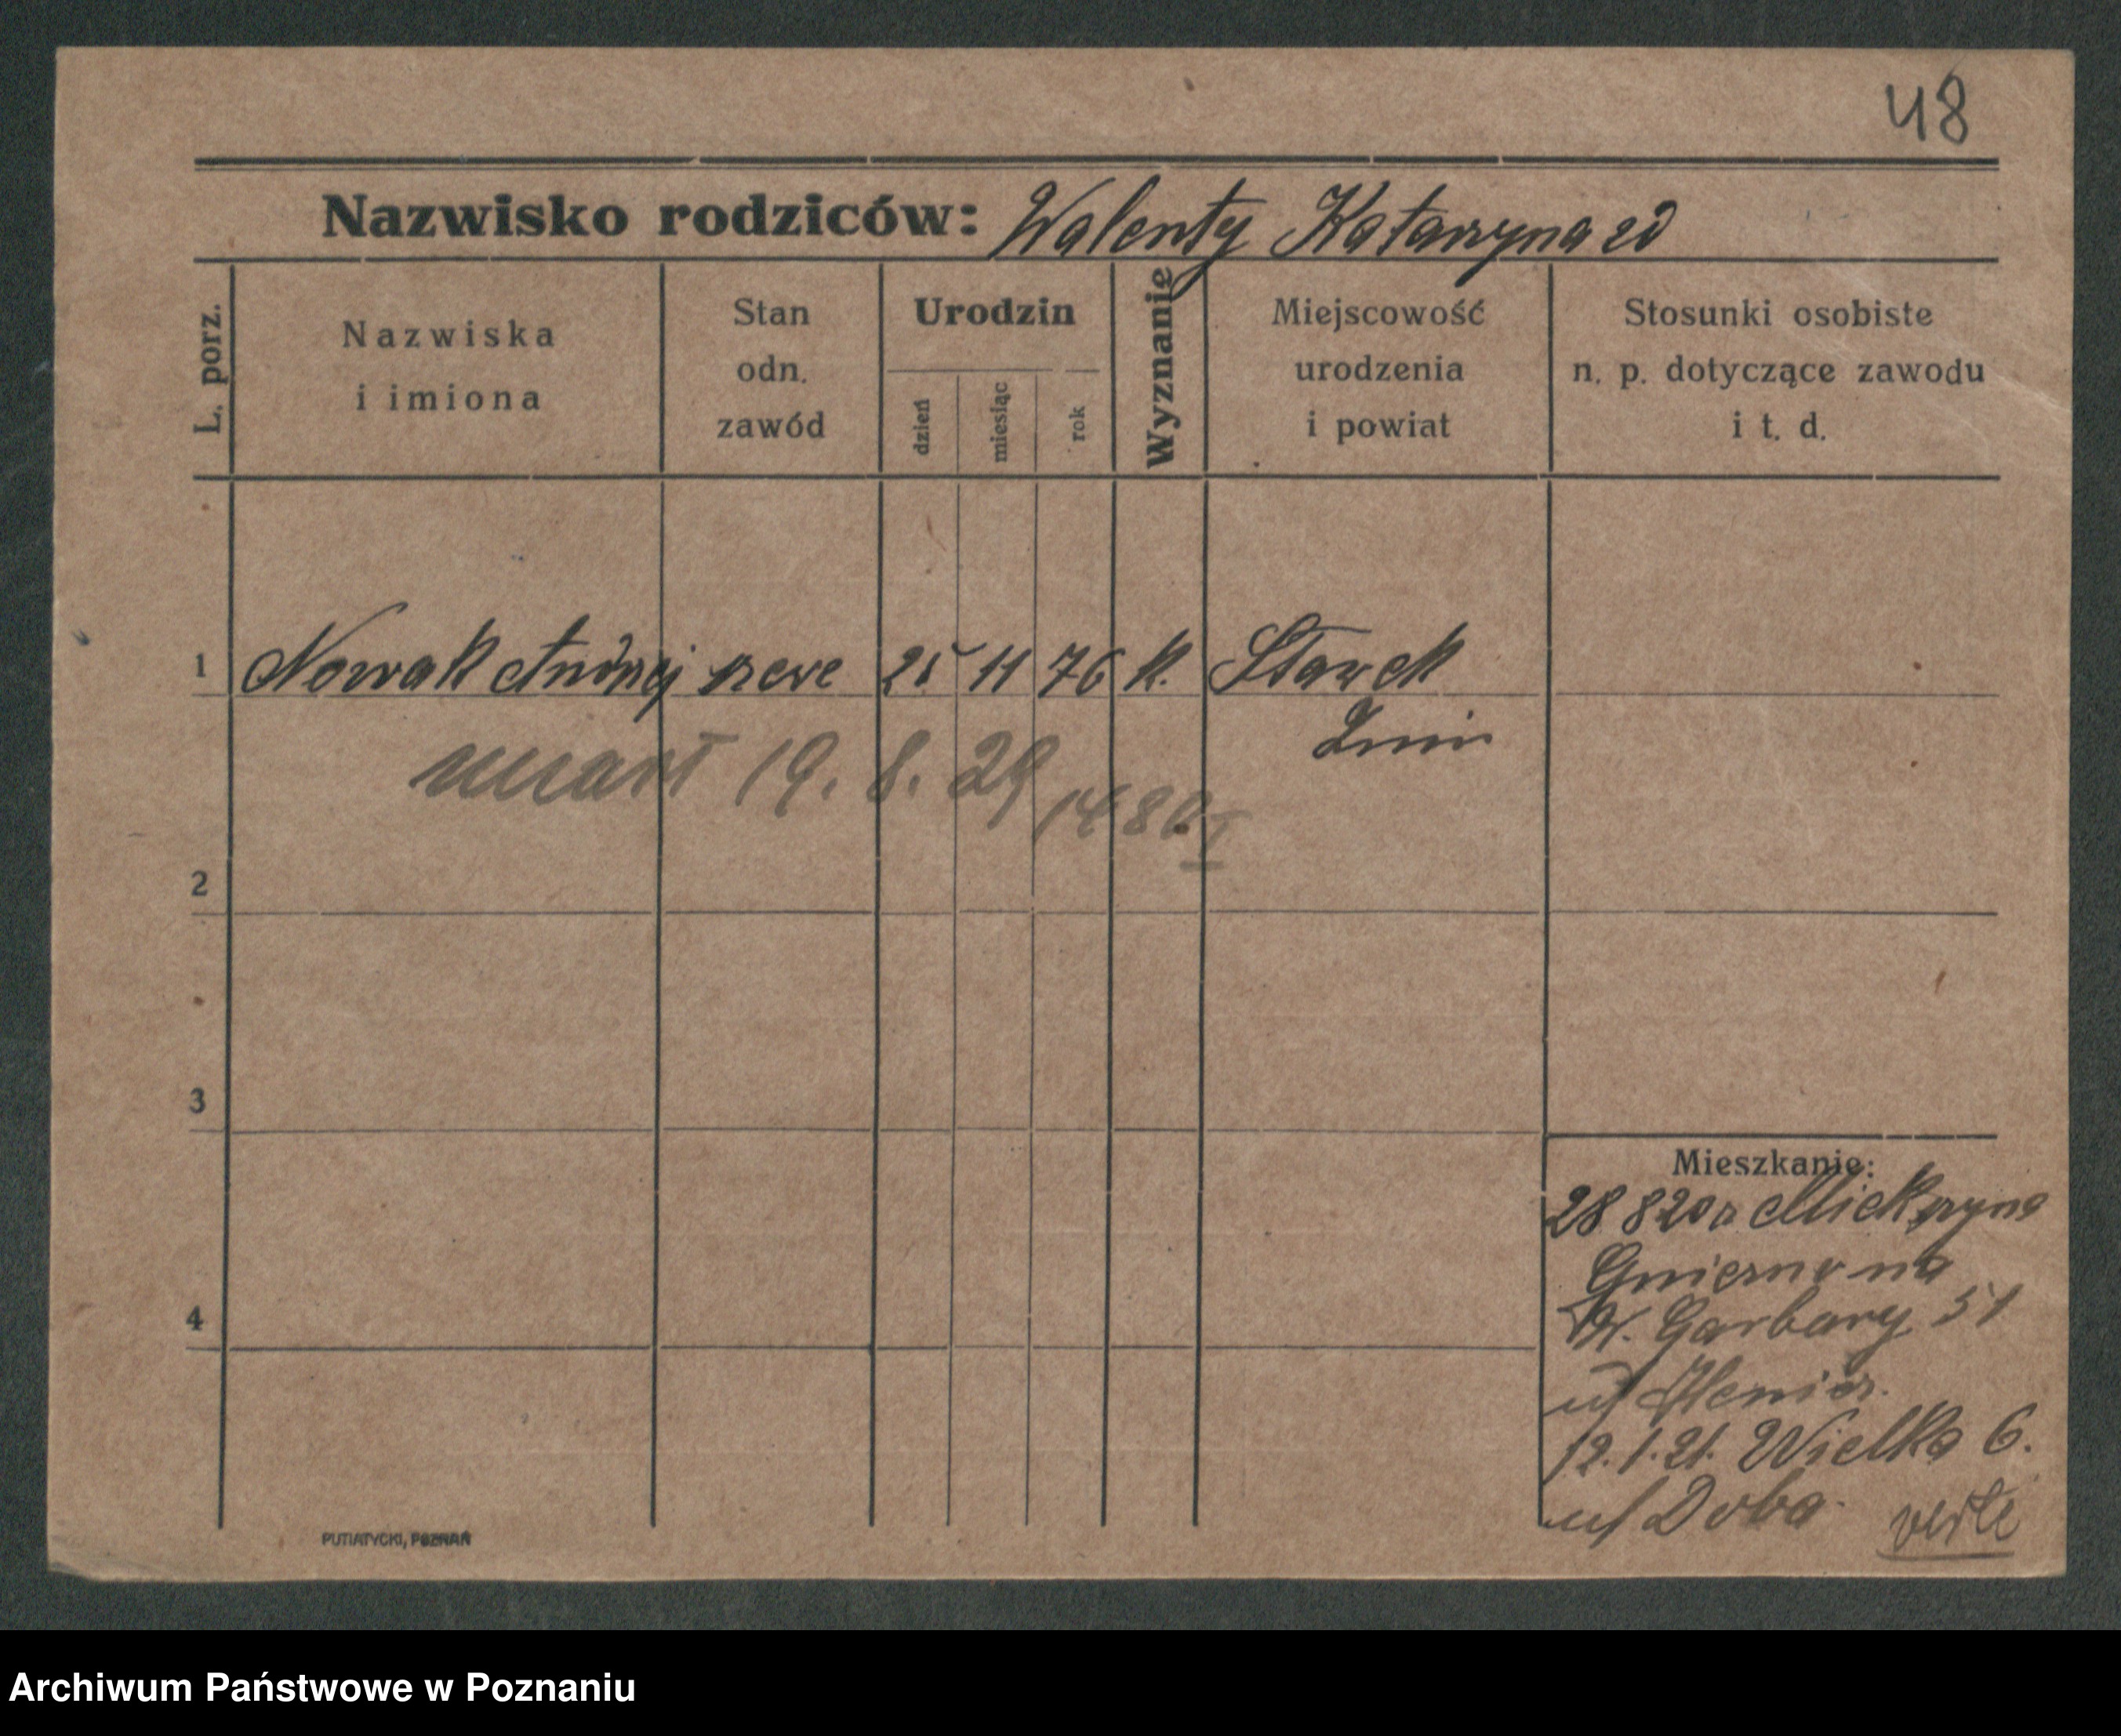 48
Nazwisko rodziców: Walenty Katarzyna zd
L. porz.
Nazwiska
i imiona
Stan
odn.
zawód
Urodzin
dzień
miesiąc
rok
Wyznanie
Miejscowość
urodzenia
i powiat
Stosunki osobiste
n. p. dotyczące zawodu
i t. d.
1 Nowak Andrzej szewc 25 11 76 k. Stawek
Żnin
umarł 19. 8. 29
2
3
4
Mieszkanie:
28 8 20 z
Gniezno na
W. Garbary 51
12. 1. 21. Wielka 6.
u/ Doba. verte
PUTIATYCKI, POZNAŃ
Archiwum Państwowe w Poznaniu